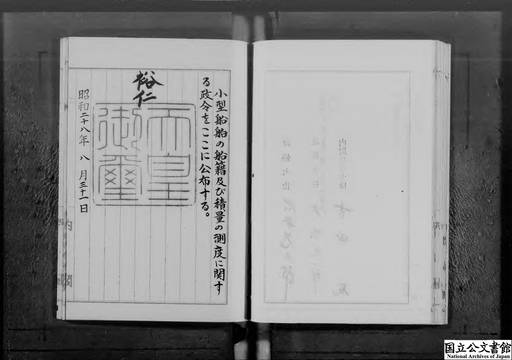 小型船舶の船籍及び積量の測度に関す
る政令をここに公布する。
裕仁
天皇
御璽
昭和二十八年 八 月三十一日
内 閣
国立公文書館
National Archives of Japan